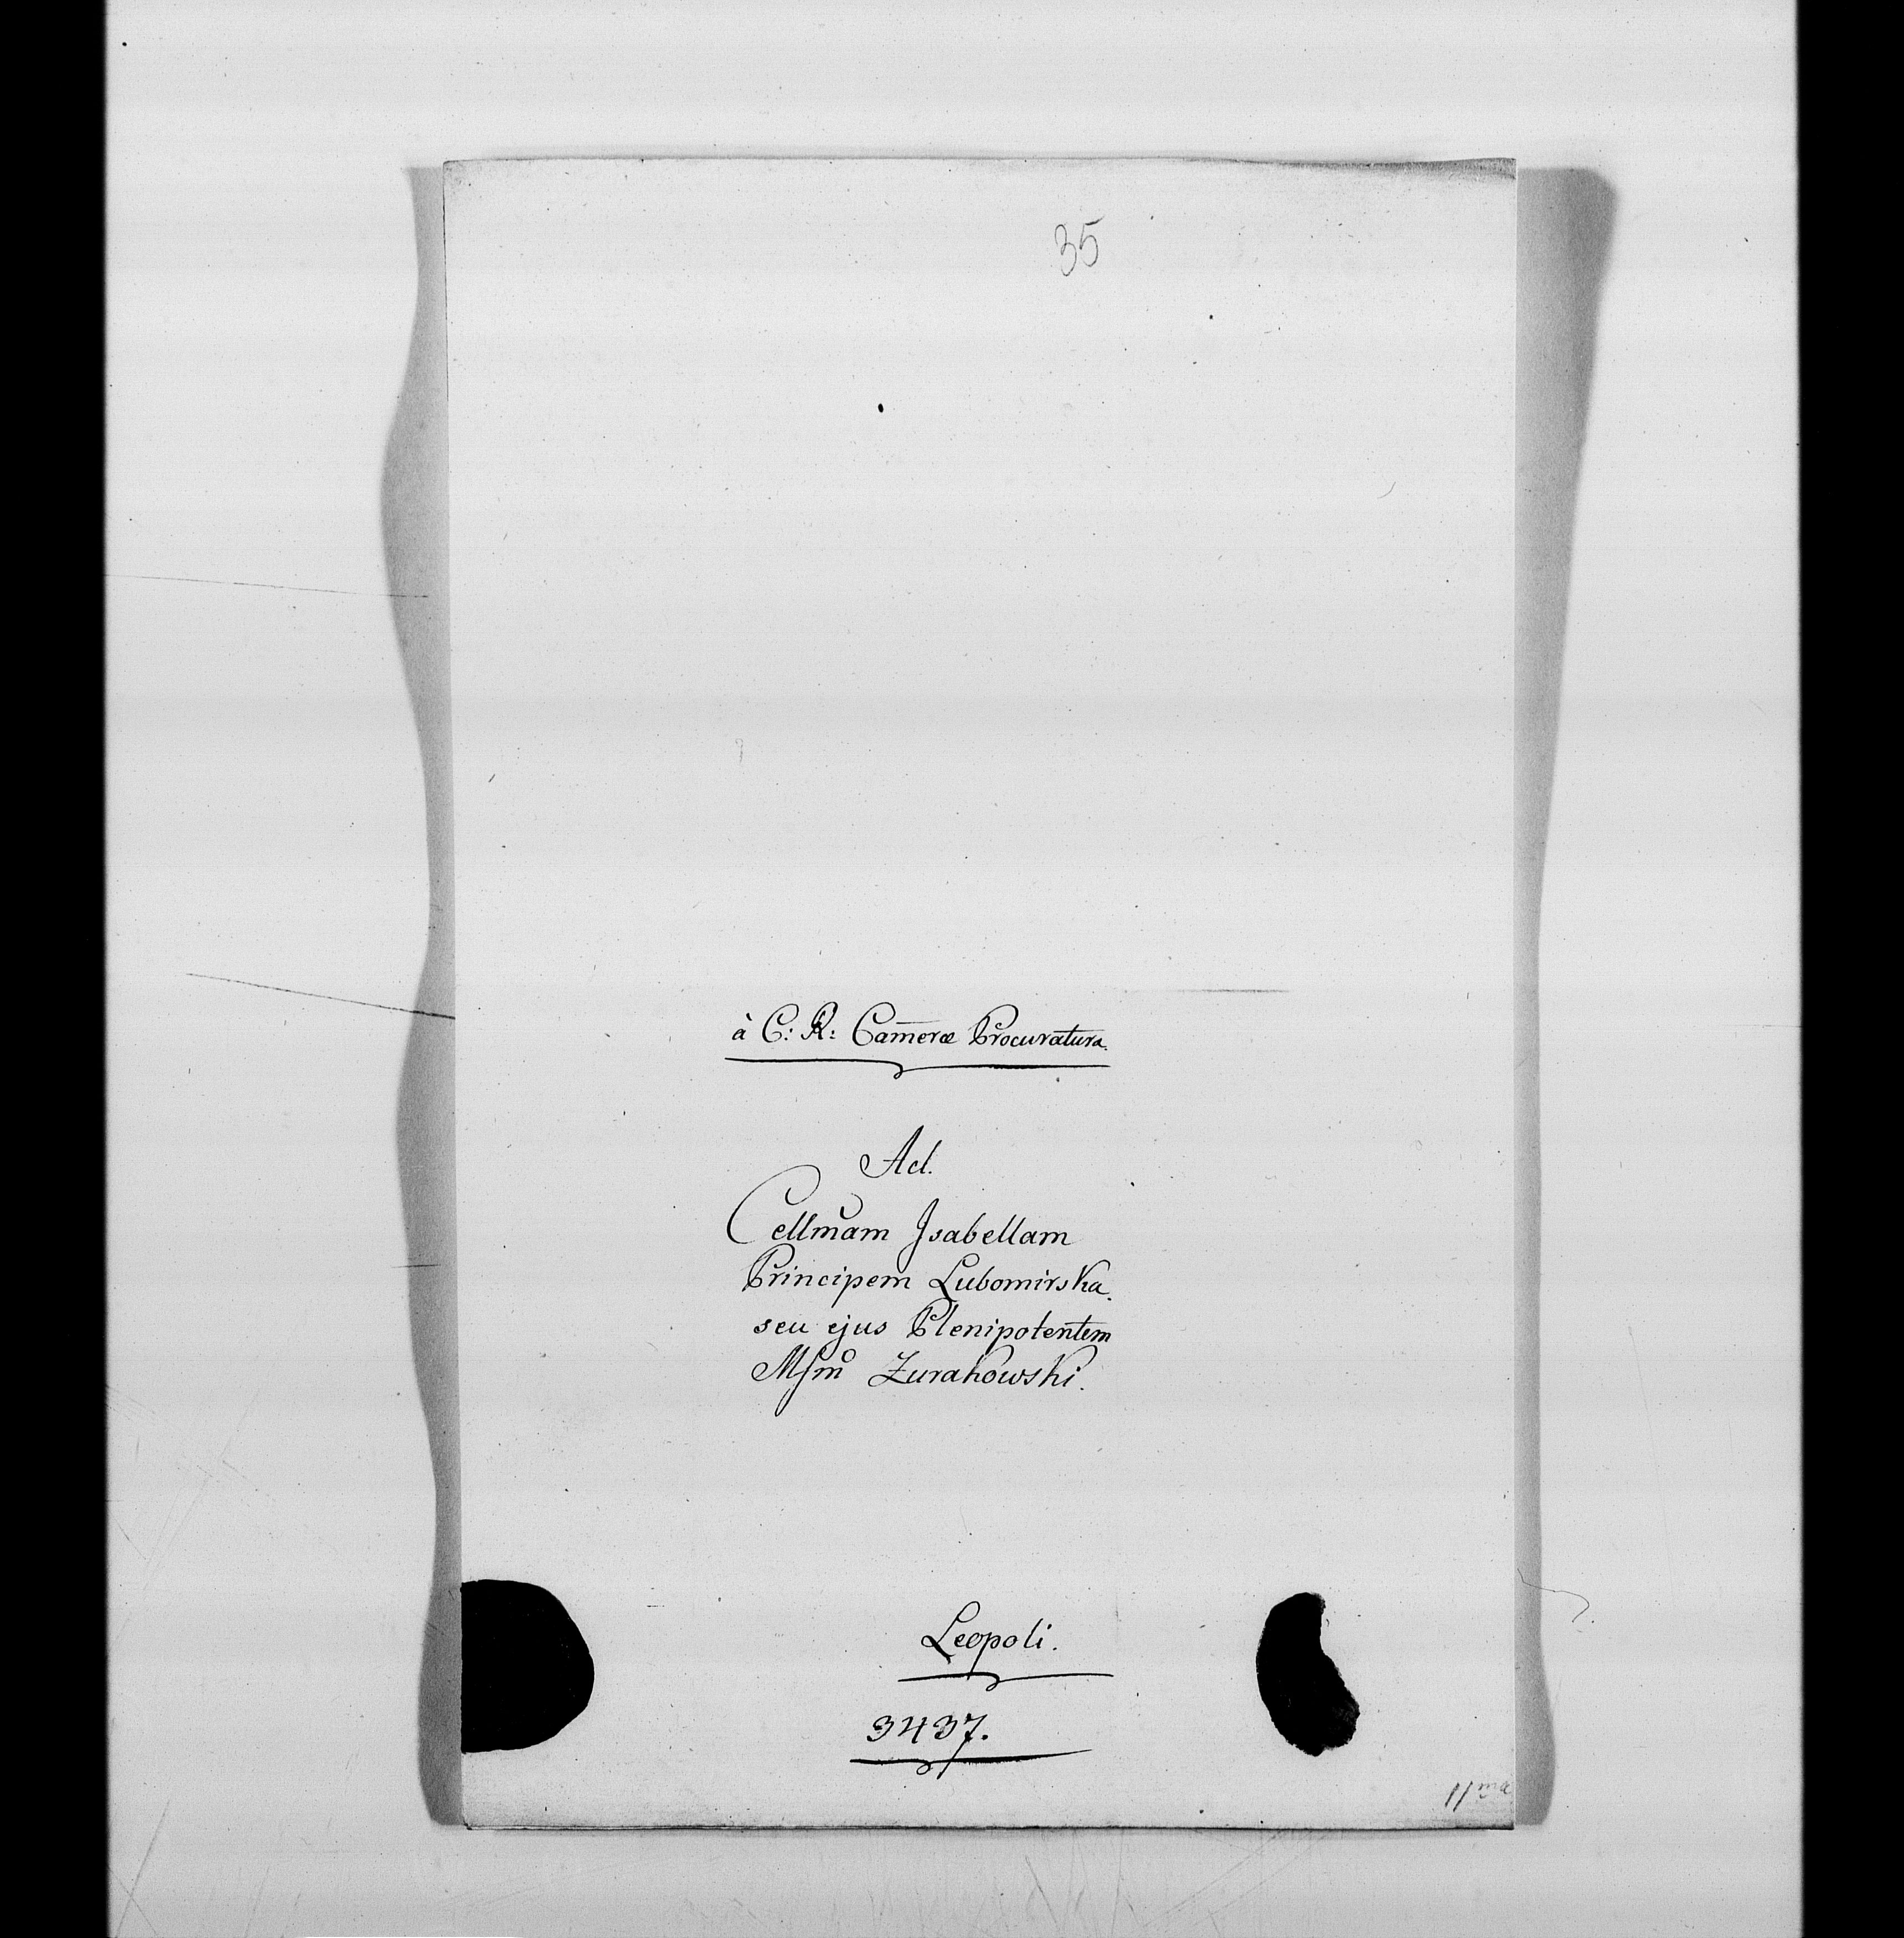 35
à C: R: Cam̄eræ Procuratura.
Ad.
Cellmam Isabellam
Principem Lubomirska.
seu ejus Plenipotentem
Zurakowski.
Leopoli.
3437.